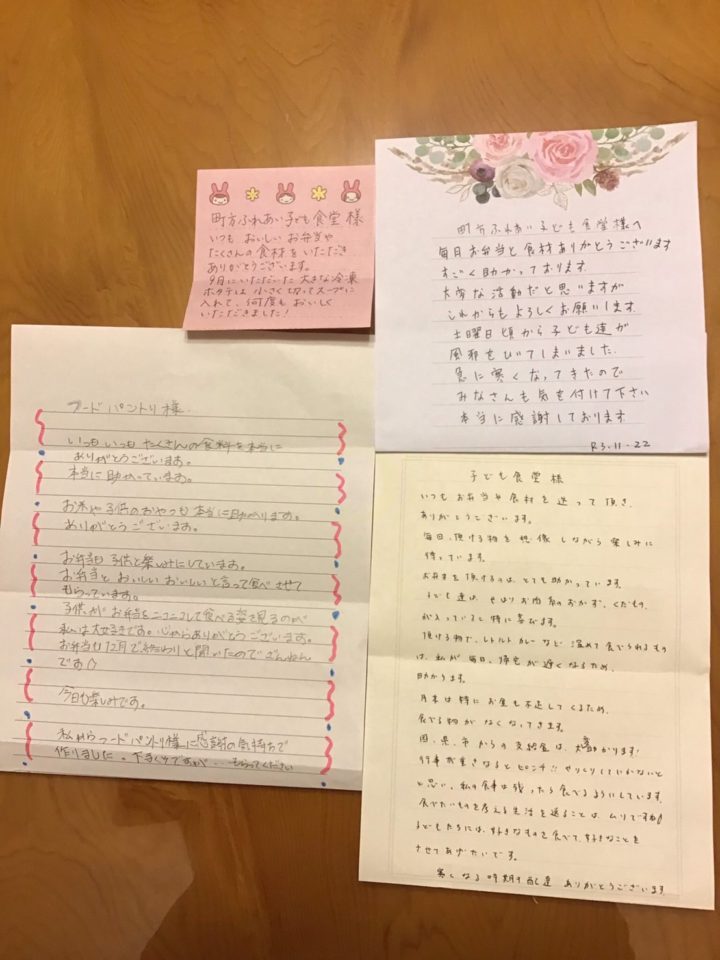 町方ふれあい子ども食堂 様
いつも おいしい お弁当や
たくさんの 食材を いただき
ありがとうございます。
9月にいただいた 大きな冷凍
ホタテは 小さく切ってスープに
入れて、何度も おいしく
いただきました！
町方ふれあい子ども食堂様へ
毎日お弁当と食材ありがとうございます
すごく助かっております.
大変な活動だと思いますが
これからもよろしくお願いします.
土曜日頃から子ども達が
風邪をひいてしまいました.
急に寒くなってきたので
みなさんも気を付けて下さい
本当に感謝しております.
R3.11.22
フードパントリー様.
いつもいつも たくさんの食料を本当に
ありがとうございます。
本当に助かっています。
お米や子供のおやつも本当に助かります。
ありがとうございます。
お弁当も子供と楽しみにしています。
お弁当とおいしいおいしいと言って食べさせて
もらっています。
子供がお弁当をニコニコして食べる姿を見るのが
私は大好きです。いつもありがとうございます。
お弁当も12月で終わりと聞いたのでざんねん
です
今日も楽しみです。
私からフードパントリー様に感謝の気持ちで
作りました。下手くそですが...もらってください
子ども食堂様
いつもお弁当や食材を送って頂き、
ありがとうございます。
毎日、頂ける物を想像しながら楽しみに
待っています。
お弁当を頂けるのは、とても助かっています。
子ども達は、やはりお肉系のおかず、くだもの、
が入っていると特に喜びます。
頂ける物で、レトルトカレーなど 温めて食べられるもの
は、私が毎日、帰宅が遅くなるため、
助かります。
月末は特にお金も不足してくるため、
食べる物がなくなってきます。
国、県、市からの支給金は、助かります！
行事が重なるとピンチ!! やりくりしていかないと
と思い、私の食事は残ったら食べるようにしています。
食べたいものを考える生活を送ることは、ムリですね
子どもたちには、好きなものを食べて、好きなことを
させてあげたいです。
寒くなる時期の配達 ありがとうございます